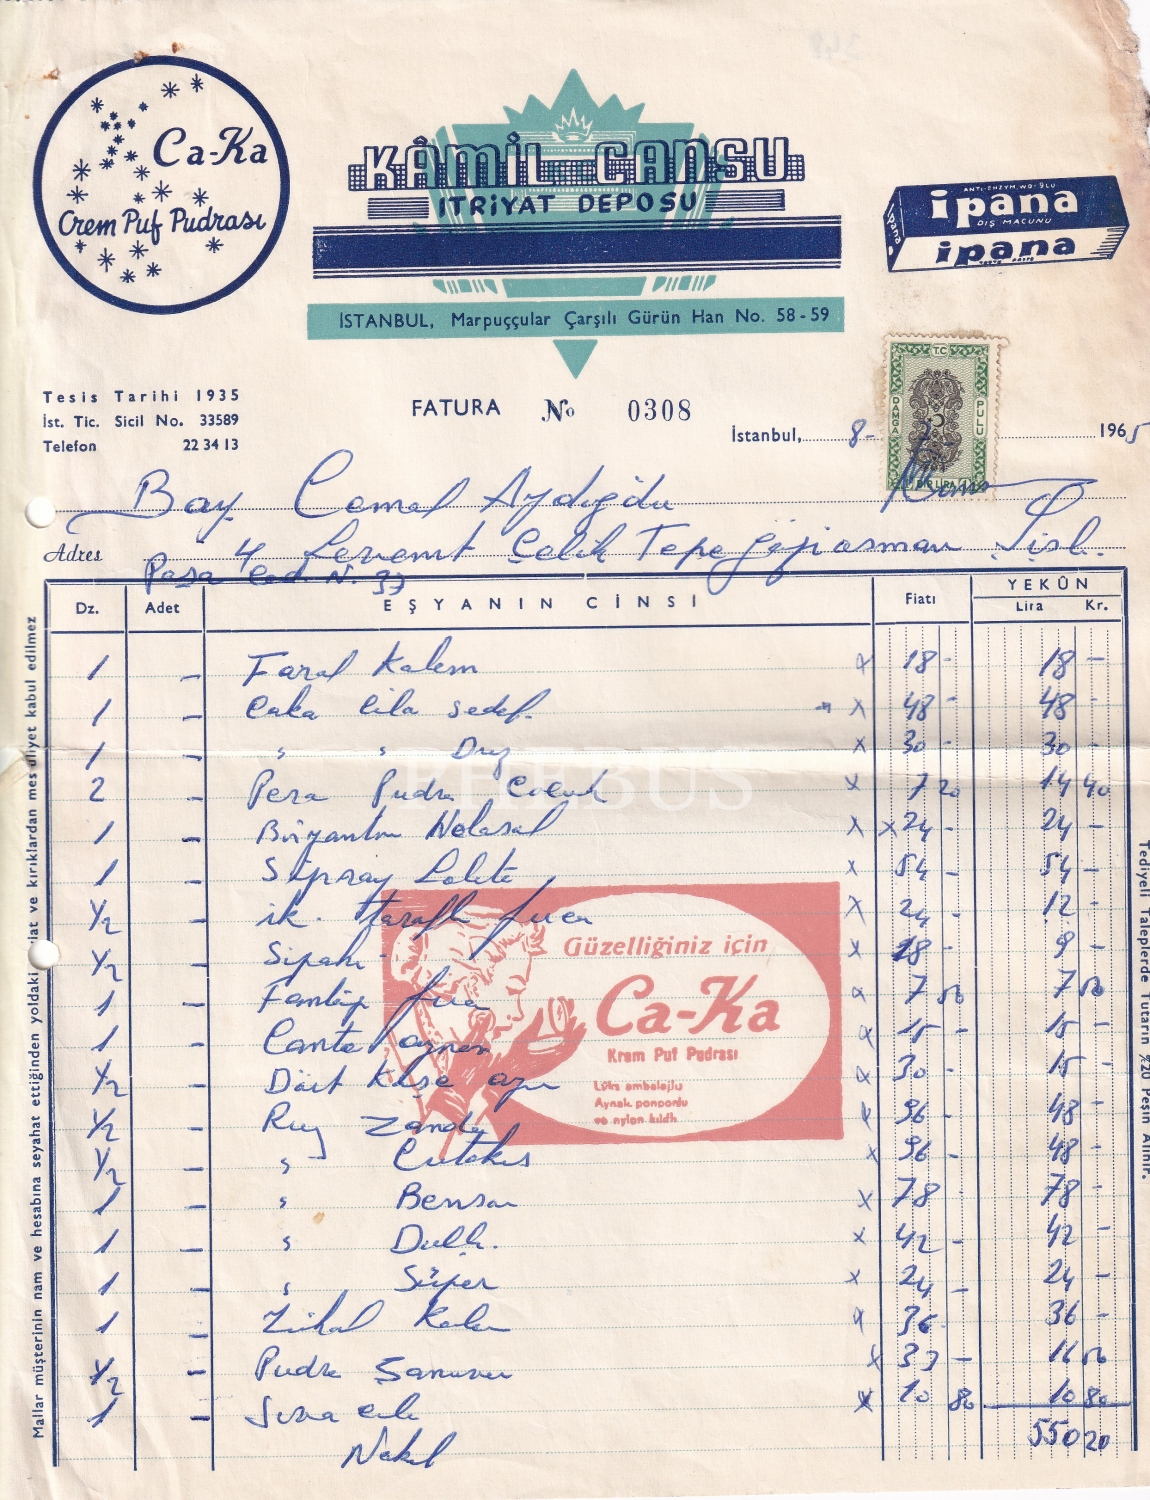 Ca-Ka
Crem Puf Pudrası
KÂMİL CANSU
ITRİYAT DEPOSU
İSTANBUL, Marpuççular Çarşılı Gürün Han No. 58-59
ANTI-ENZYM WO-9LU
ipana
DİŞ MACUNU
ipana
ipana
Tesis Tarihi 1935
İst. Tic. Sicil No. 33589
Telefon 22 34 13
FATURA No 0308
T.C
DAMGA PULU
BİR LİRA
İstanbul, 8- 1965
Bay Cemal Aydoğdu
Adres 4 Levent Çelik Tepe
Paşa Cad. N. 37
Dz. Adet EŞYANIN CİNSİ Fiatı YEKÛN
Lira Kr.
1 - Faral Kalem x 18 - 18 -
1 - Caka Cila Sedef. x 48 - 48 -
1 - " " Düz x 30 - 30 -
2 - Pera Pudra Çocuk x 7 20 14 40
1 - Biryantin x 24 - 24 -
1 - Sipray x 54 - 54 -
1/2 - ik. taraflı x 24 - 12 -
1/2 - Sipahi x 18 - 9 -
1 - x 7 50 7 50
1 - x 15 - 15 -
1/2 - Dört Köşe x 30 - 15 -
1/2 - Ruj x 96 - 48 -
1/2 - " x 96 - 48 -
1 - " Bensu x 78 - 78 -
1 - " x 42 - 42 -
1 - " Süper x 24 - 24 -
1 - Zühal Kalem x 36 - 36 -
1/2 - Pudra x 33 - 16 50
1 - x 10 80 10 80
Nakil 550 20
PHEBUS
Güzelliğiniz için
Ca-Ka
Krem Puf Pudrası
Lüks ambalajlu
Aynalı ponponlu
ve nylon kılıflı
Mallar müşterinin nam ve hesabına seyahat ettiğinden yoldaki ve kırıklardan mes'uliyet kabul edilmez
Tediyeli Taleplerde Tutarın %20 Peşin Alınır.